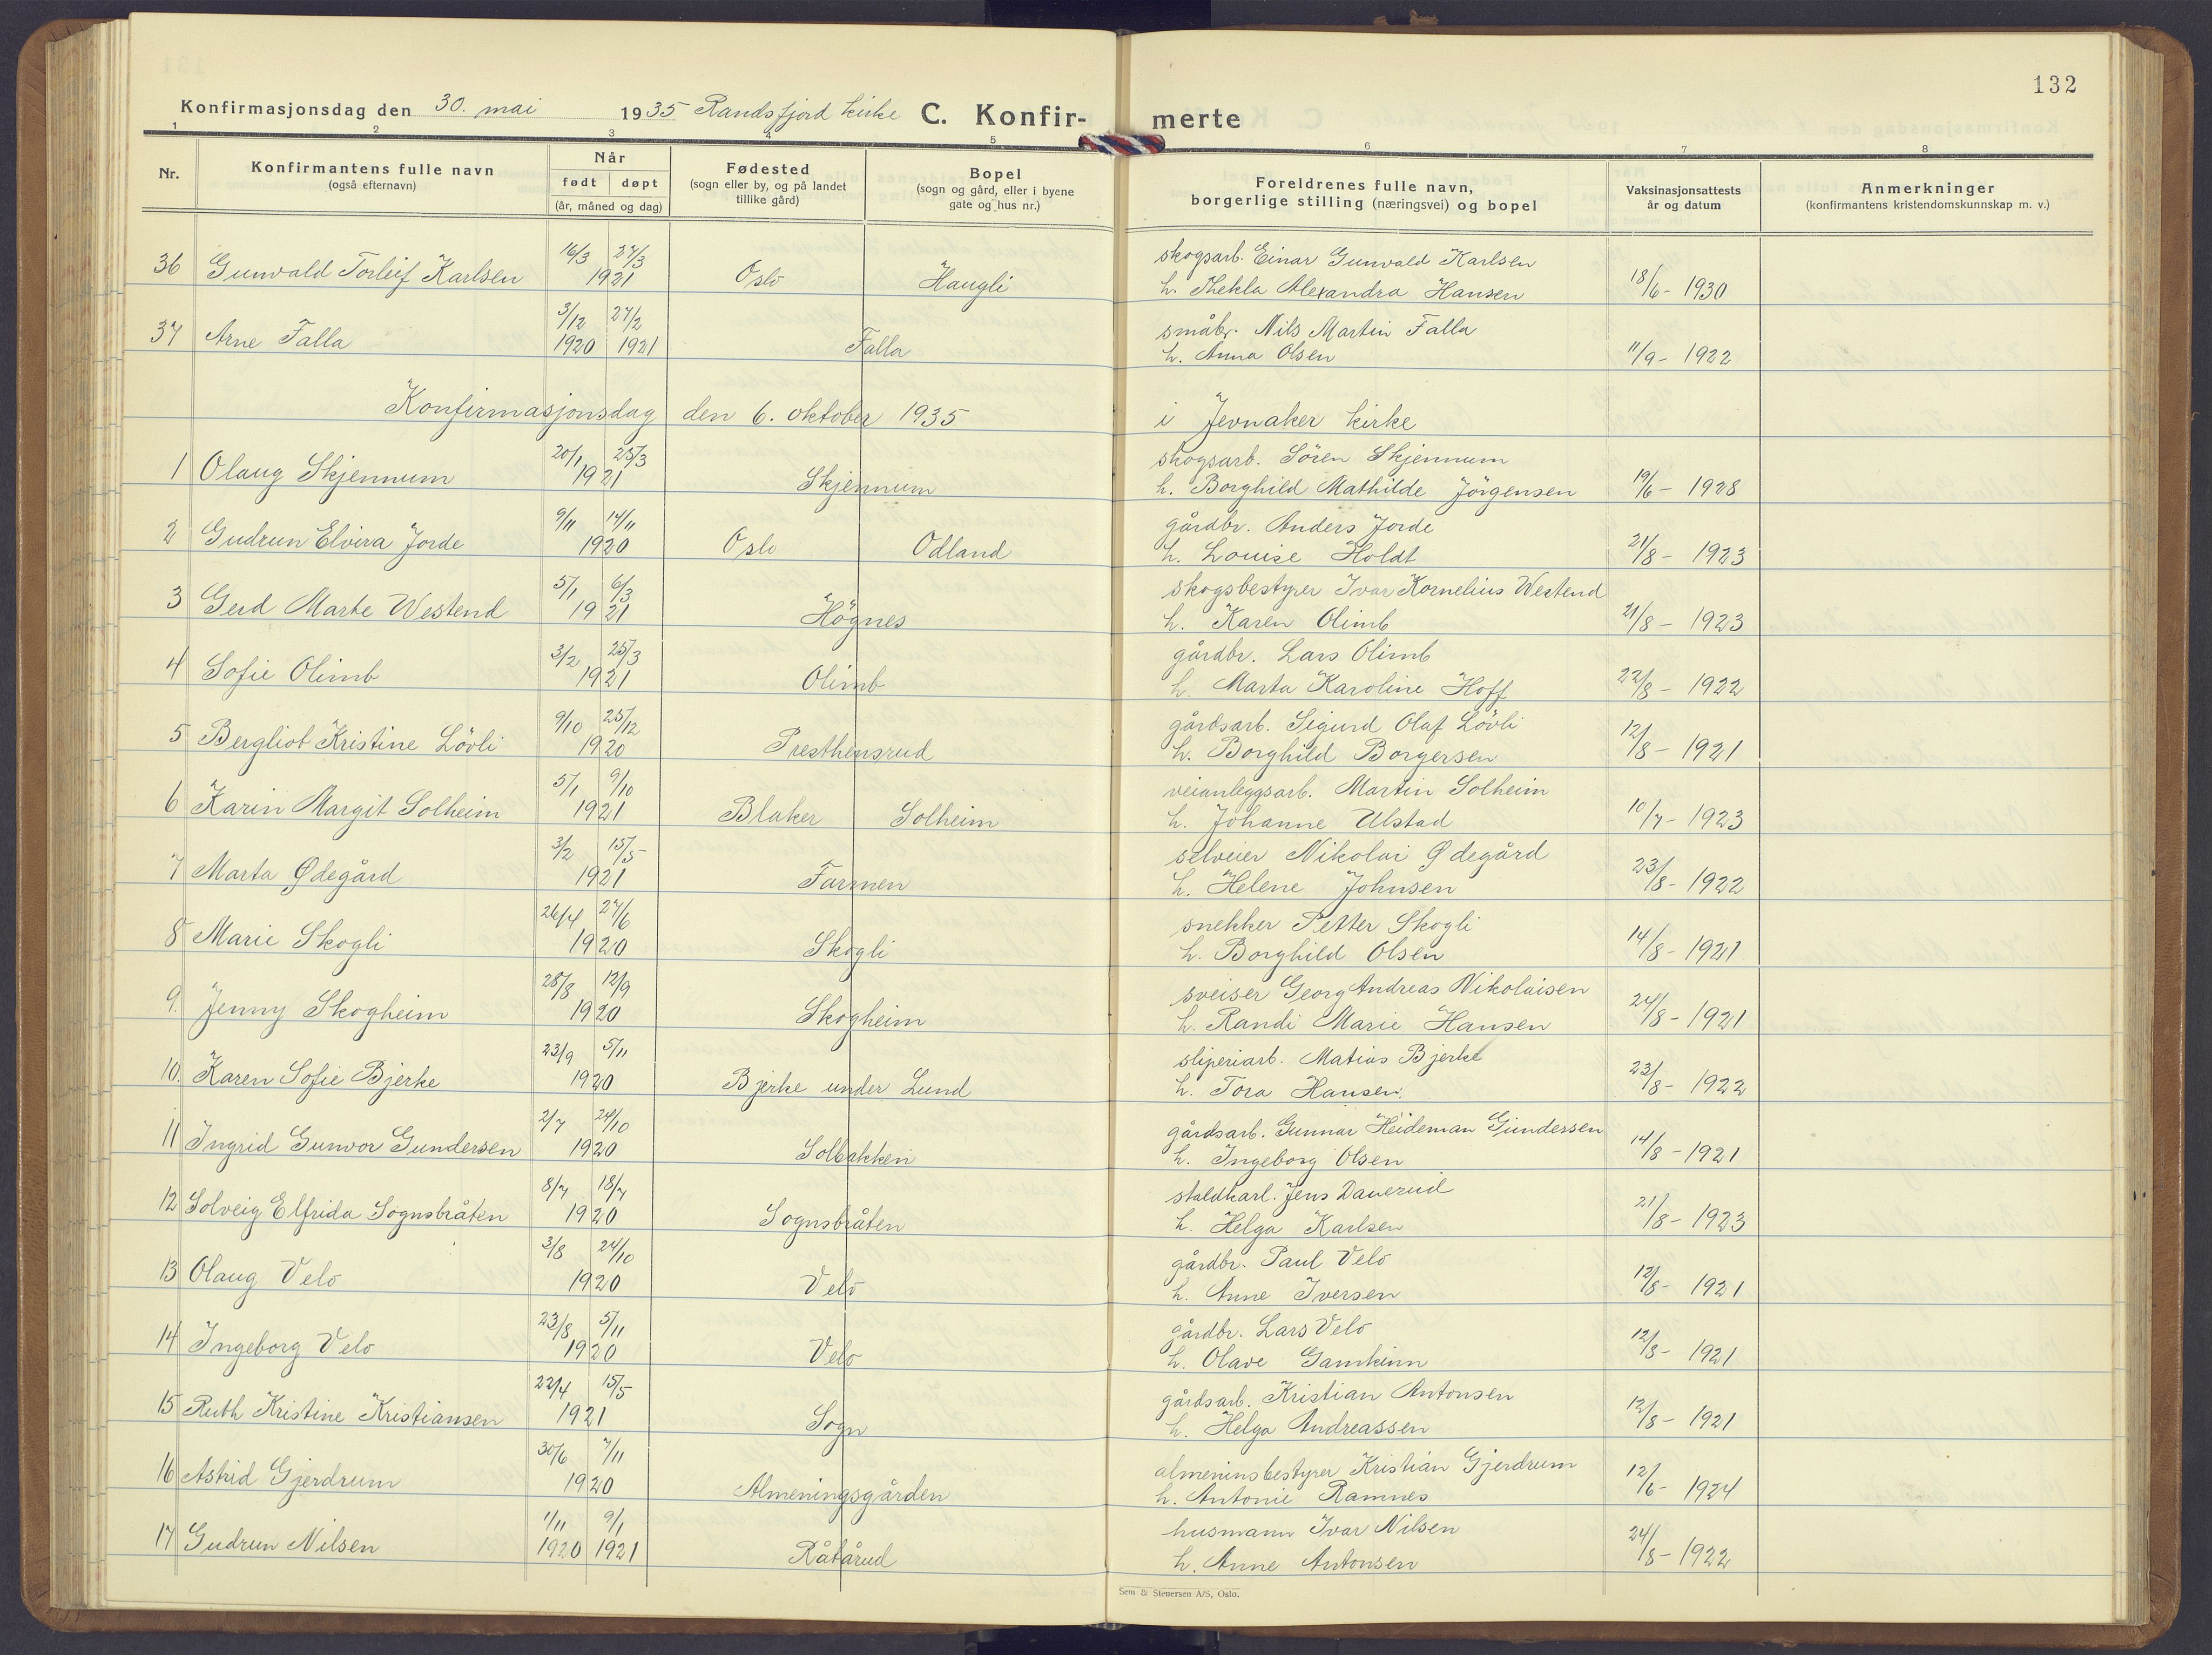 132
Konfirmasjonsdag den 30. mai 1935 Randsfjord kirke C. Konfir- merte
1 2 3 4 5 6 7 8
Nr. Konfirmantens fulle navn (også efternavn) Når født døpt (år, måned og dag) Fødested (sogn eller by, og på landet tillike gård) Bopel (sogn og gård, eller i byene gate og hus nr.) Foreldrenes fulle navn, borgerlige stilling (næringsvei) og bopel Vaksinasjonsattests år og datum Anmerkninger (konfirmantens kristendomskunnskap m. v.)
16/3 27/3 skogsarb. Einar Gunvald Karlsen
36 Gunvald Torleif Karlsen 1921 Oslo Haugli h. Thekla Alexandra Hansen 18/6 - 1930
3/12 27/2 småbr. Nils Martin Falla
37 Arne Falla 1920 1921 Falla h. Anna Olsen 11/9 - 1922
Konfirmasjonsdag den 6. oktober 1935 i Jevnaker kirke
20/1 25/3 skogsarb. Sören Skjennum
1 Olaug Skjennum 1921 Skjennum h. Borghild Mathilde Jörgensen 19/6 - 1928
9/11 14/11 gårdbr. Anders Jorde
2 Gudrun Elvira Jorde 1920 Oslo Odland h. Louise Holdt 21/8 - 1923
5/1 6/3 skogsbestyrer Ivar Kornelius Westend
3 Gerd Marte Westend 1921 Högnes h. Karen Olimb 21/8 - 1923
3/2 25/3 gårdbr. Lars Olimb
4 Sofie Olimb 1921 Olimb h. Marta Karoline Hoff 22/8 - 1922
9/10 25/12 gårdsarb. Sigurd Olaf Lövli
5 Bergliot Kristine Lövli 1920 Presthensrud h. Borghild Borgersen 12/8 - 1921
5/1 9/10 veianleggsarb. Martin Solheim
6 Karin Margit Solheim 1921 Blaker Solheim h. Johanne Ulstad 10/7 - 1923
3/2 15/5 selveier Nikolai Ødegård
7 Marta Ødegård 1921 Farmen h. Helene Johnsen 23/8 - 1922
26/4 27/6 snekker Petter Skogli
8 Marie Skogli 1920 Skogli h. Borghild Olsen 14/8 - 1921
28/8 12/9 sveiser Georg Andreas Nikolaisen
9. Jenny Skogheim 1920 Skogheim h. Randi Marie Hansen 24/8 - 1921
23/9 5/11 sliperiarb. Matias Bjerke
10. Karen Sofie Bjerke 1920 Bjerke under Lund h. Tora Hansen. 23/8 - 1922
2/7 24/10 gårdsarb. Gunnar Heideman Gundersen
11 Ingrid Gunvor Gundersen 1920 Solbakken h. Ingeborg Olsen 14/8 - 1921
8/7 18/7 staldkarl. Jens Dauerud
12 Solveig Elfrida Sognsbråten 1920 Sognsbråten h. Helga Karlsen 21/8 - 1923
3/8 24/10 gårdbr. Paul Velo
13 Olaug Velo 1920 Velo h. Anne Iversen 12/8 - 1921
23/8 5/11 gårdbr. Lars Velo
14 Ingeborg Velo 1920 Velo h. Olave Gamkinn 12/8 - 1921
22/4 15/5 gårdsarb. Kristian Antonsen
15 Ruth Kristine Kristiansen 1921 Sogn h. Helga Andreassen 12/8 - 1921
30/6 7/11 almeninsbestyrer Kristian Gjerdrum
16 Astrid Gjerdrum 1920 Almeningsgården h. Antonie Ramnes 12/6 - 1924
1/11 9/1 husmann Ivar Nilsen
17 Gudrun Nilsen 1920 1921 Råtårud h. Anne Antonsen 24/8 - 1922
Sem & Stenersen A/S, Oslo.